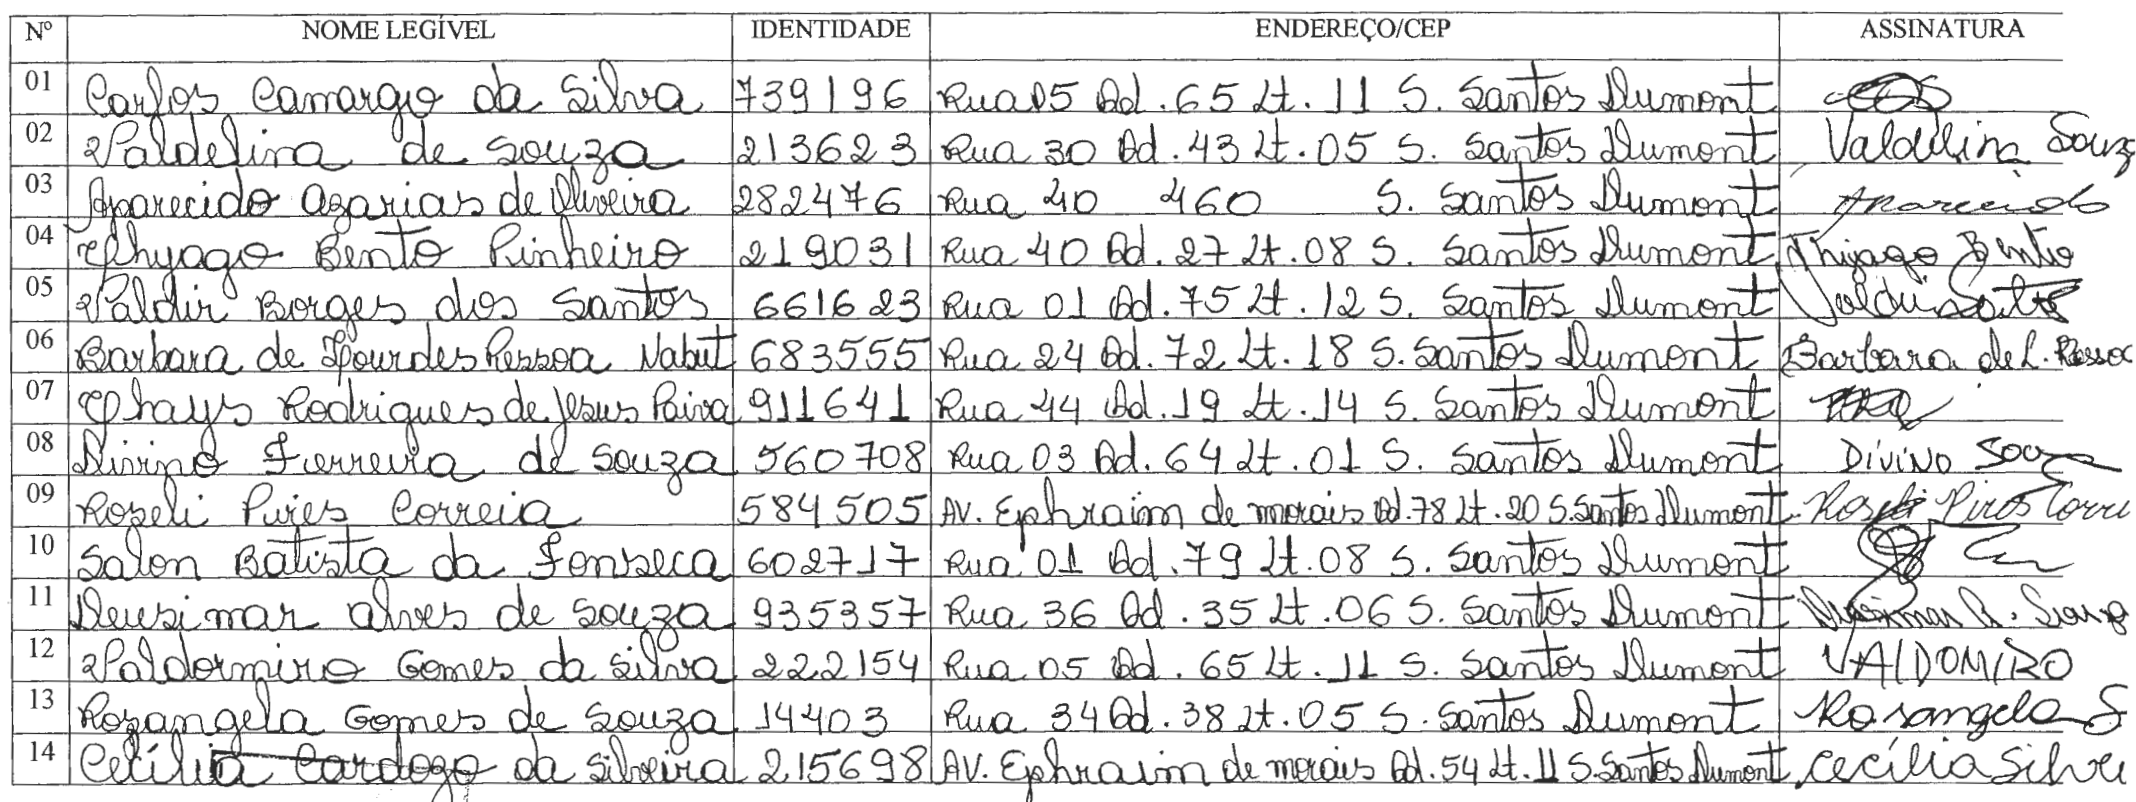 Nº NOME LEGÍVEL IDENTIDADE ENDEREÇO/CEP ASSINATURA
01 Carlos Camargo da Silva 739196 Rua 05 Qd. 65 Lt. 11 S. Santos Dumont
02 Valdelina de Souza 213623 Rua 30 Qd. 43 Lt. 05 S. Santos Dumont Valdelina Souza
03 Aparecido Azarias de Oliveira 282476 Rua 40 460 S. Santos Dumont Aparecido
04 Thyago Bento Pinheiro 219031 Rua 40 Qd. 27 Lt. 08 S. Santos Dumont Thyago Bento
05 Valdir Borges dos Santos 661623 Rua 01 Qd. 75 Lt. 12 S. Santos Dumont Valdir Santos
06 Barbara de Lourdes Pessoa Nabut 683555 Rua 24 Qd. 72 Lt. 18 S. Santos Dumont Barbara de L. Pessoa
07 Thays Rodrigues de Jesus Paiva 911641 Rua 44 Qd. 19 Lt. 14 S. Santos Dumont
08 Divino Ferreira de Souza 560708 Rua 03 Qd. 64 Lt. 01 S. Santos Dumont Divino Souza
09 Roseli Pires Correia 584505 AV. Ephraim de morais Qd. 78 Lt. 20 S. Santos Dumont Roseli Pires Corre
10 Salon Batista da Fonseca 602717 Rua 01 Qd. 79 Lt. 08 S. Santos Dumont
11 Deusimar Alves de Souza 935357 Rua 36 Qd. 35 Lt. 06 S. Santos Dumont Deusimar A. Souza
12 Valdormiro Gomes da Silva 222154 Rua 05 Qd. 65 Lt. 11 S. Santos Dumont VALDOMIRO
13 Rozangela Gomes de Souza 14403 Rua 34 Qd. 38 Lt. 05 S. Santos Dumont Rosangela S
14 Cecília Cardozo da Silveira 215698 AV. Ephraim de morais Qd. 54 Lt. 11 S. Santos Dumont Cecília Silve